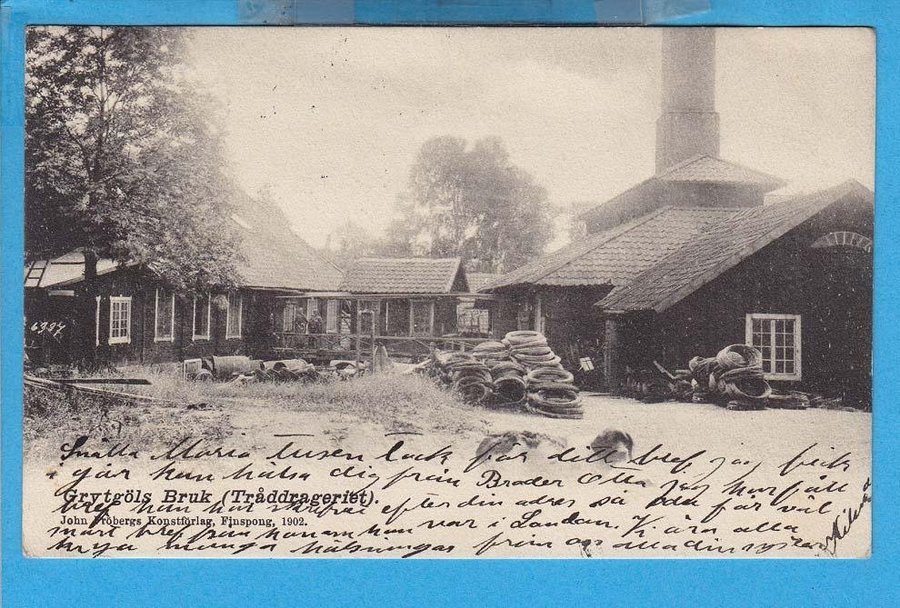 6987
Snälla Maria tusen tack för ditt bref jag fick
går kan hälsa dig från Broder Otto jag har fått
Grytgöls Bruk (Tråddrageriet).
bref han har skrifvit efter din adres så du får väl
John Fröbergs Konstförlag, Finspong, 1902.
snart bref från honom han var i London. Vi äro alla
många hälsningar från oss alla din syster